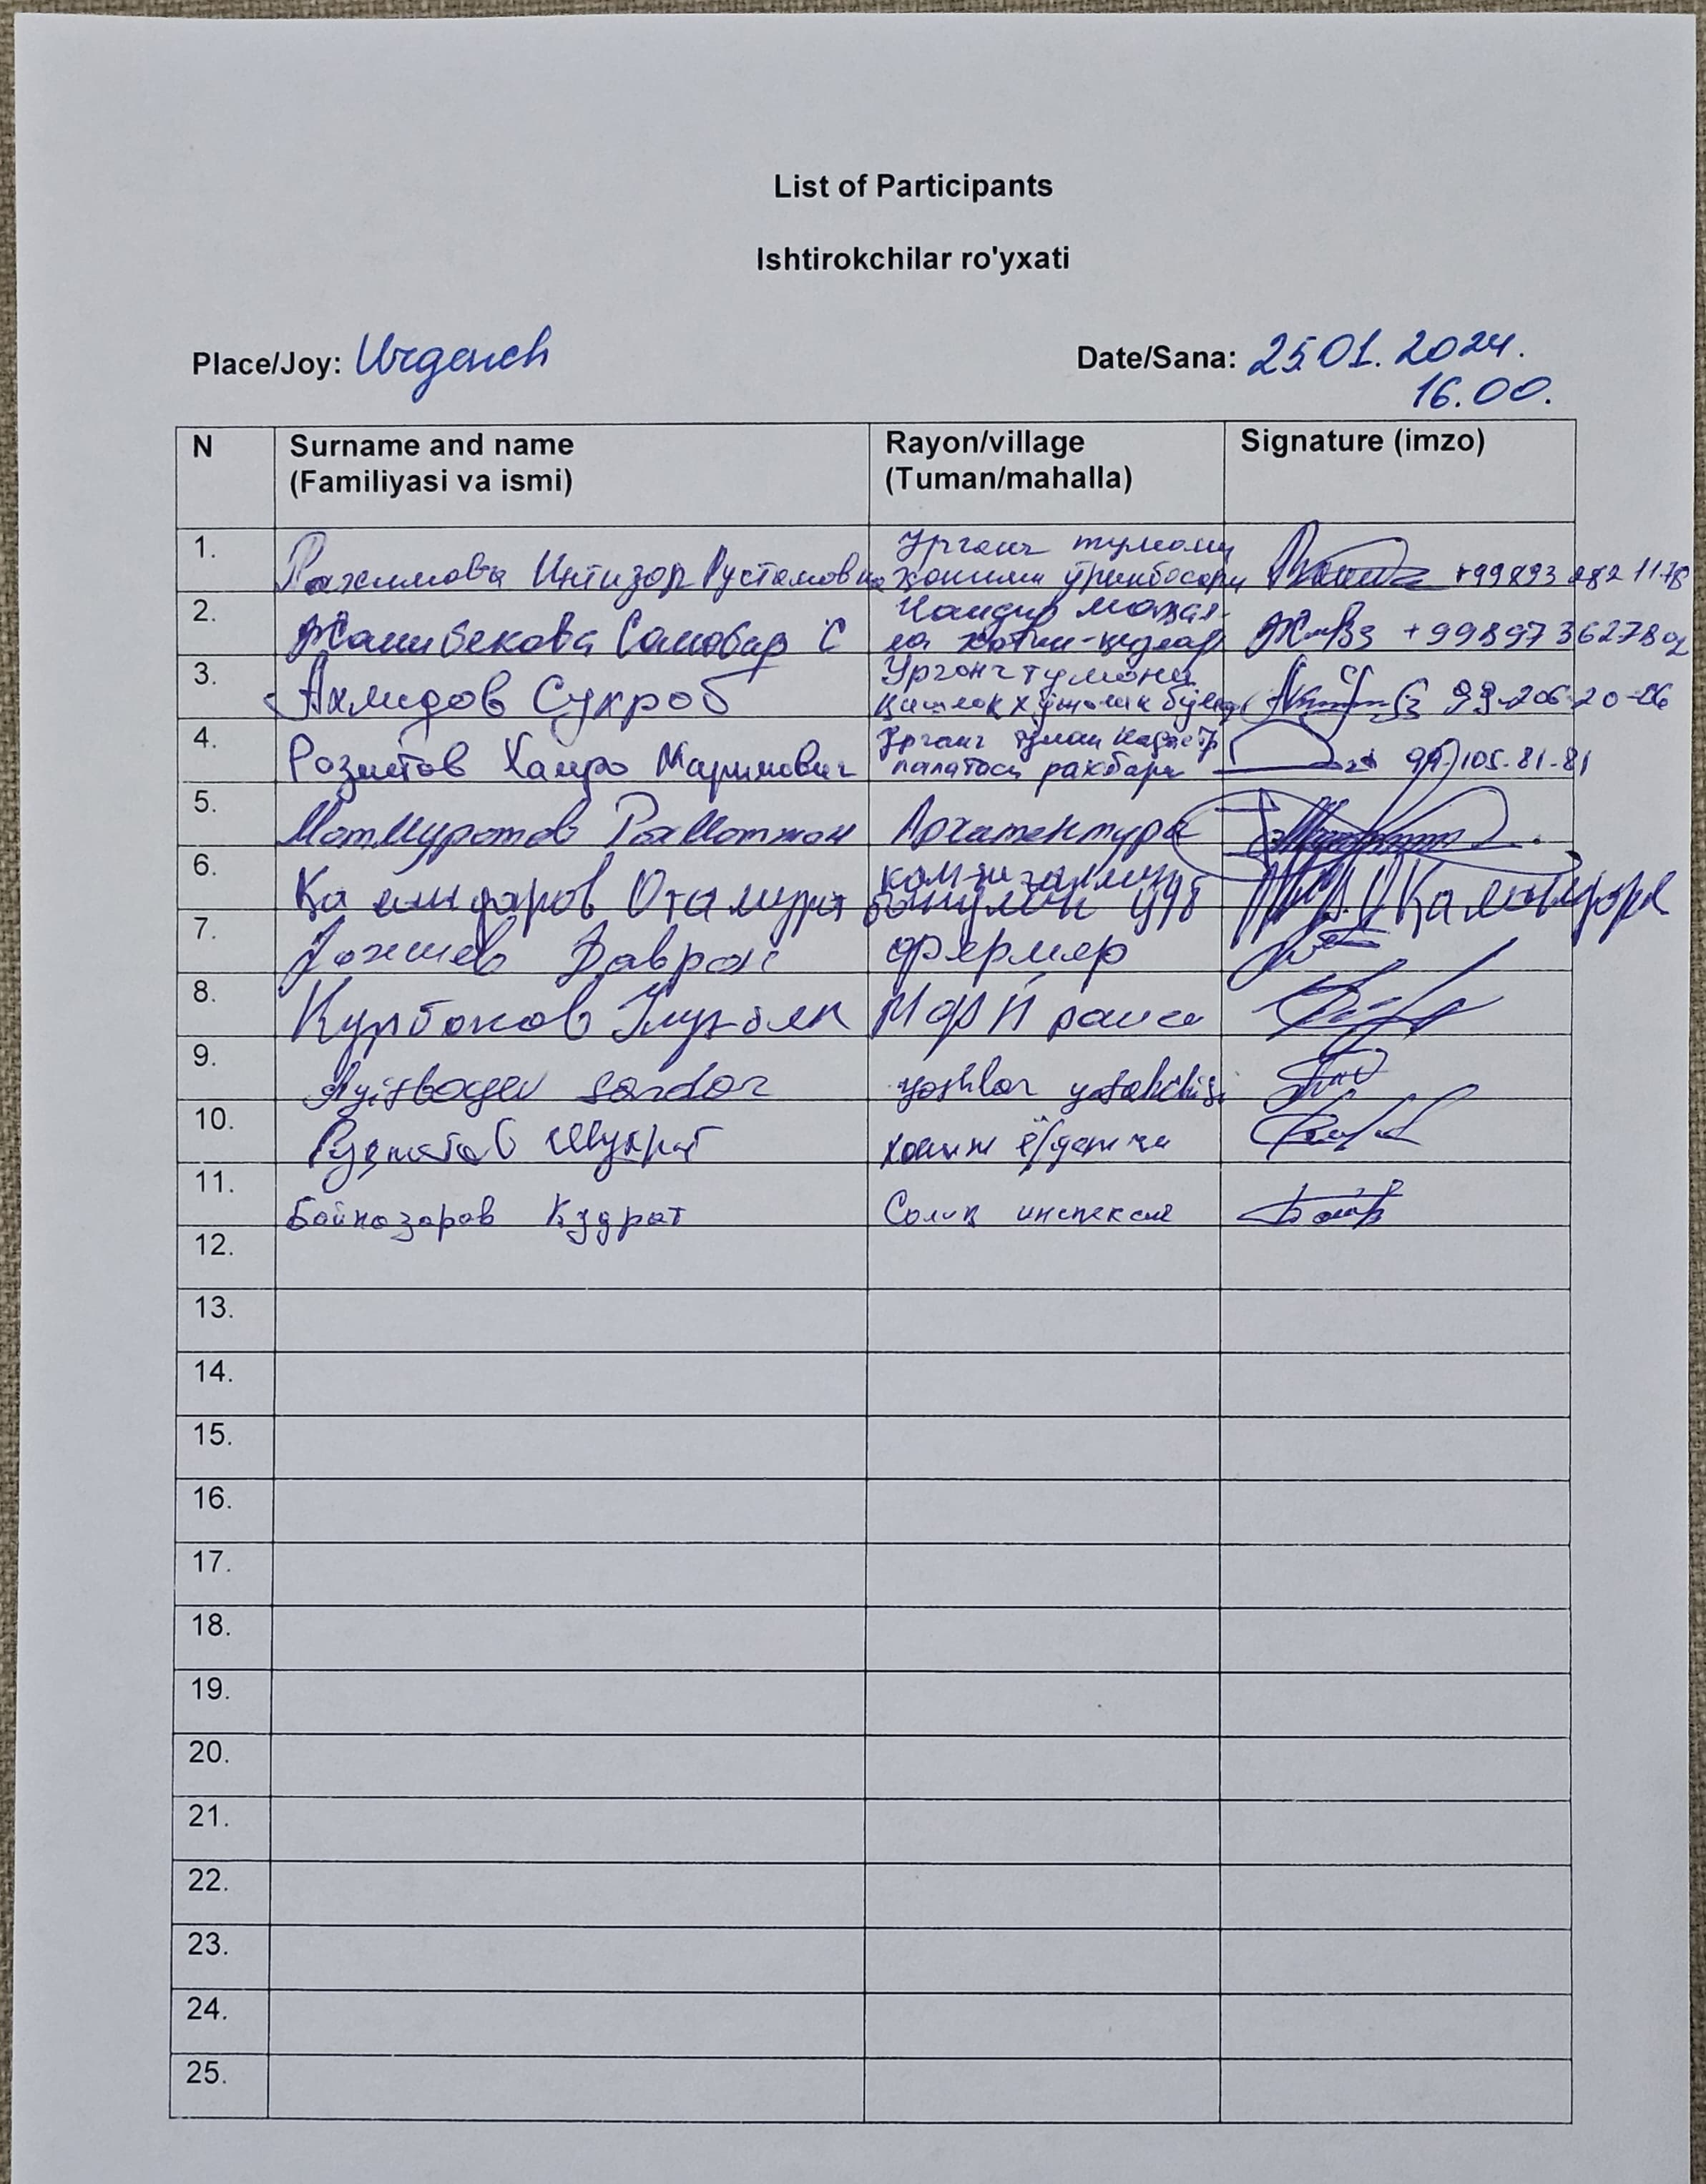 List of Participants
Ishtirokchilar ro'yxati
Place/Joy: Urgench
Date/Sana: 25.01.2024.
16.00.
N
Surname and name
(Familiyasi va ismi)
Rayon/village
(Tuman/mahalla)
Signature (imzo)
1.
Рахимова Интизор Рустамовна
Урганч тумани
ҳокими ўринбосари
+99893 282 1178
2.
Жанибекова Санобар С
маҳал-
ла хотин-қизлар
+99897 3627892
3.
Ахмидов Сухроб
Урганч тумани
Қишлоқ хўжалик бўлими
99-206-20-06
4.
Розметов Хамро Маримович
Урганч туман кадастр
палатаси рахбари
105-81-81
5.
МатМуротов РахМатжон
Архитектура
6.
Каландаров Отамурат
7.
Даврон
фермер
8.
Курбонов Улугбек
МФЙ раиси
9.
Sardor
yoshlar yetakchisi
10.
Рузметов Шухрат
хоким ёрдамчи
11.
Бойназаров Кудрат
Солиқ инспексия
12.
13.
14.
15.
16.
17.
18.
19.
20.
21.
22.
23.
24.
25.